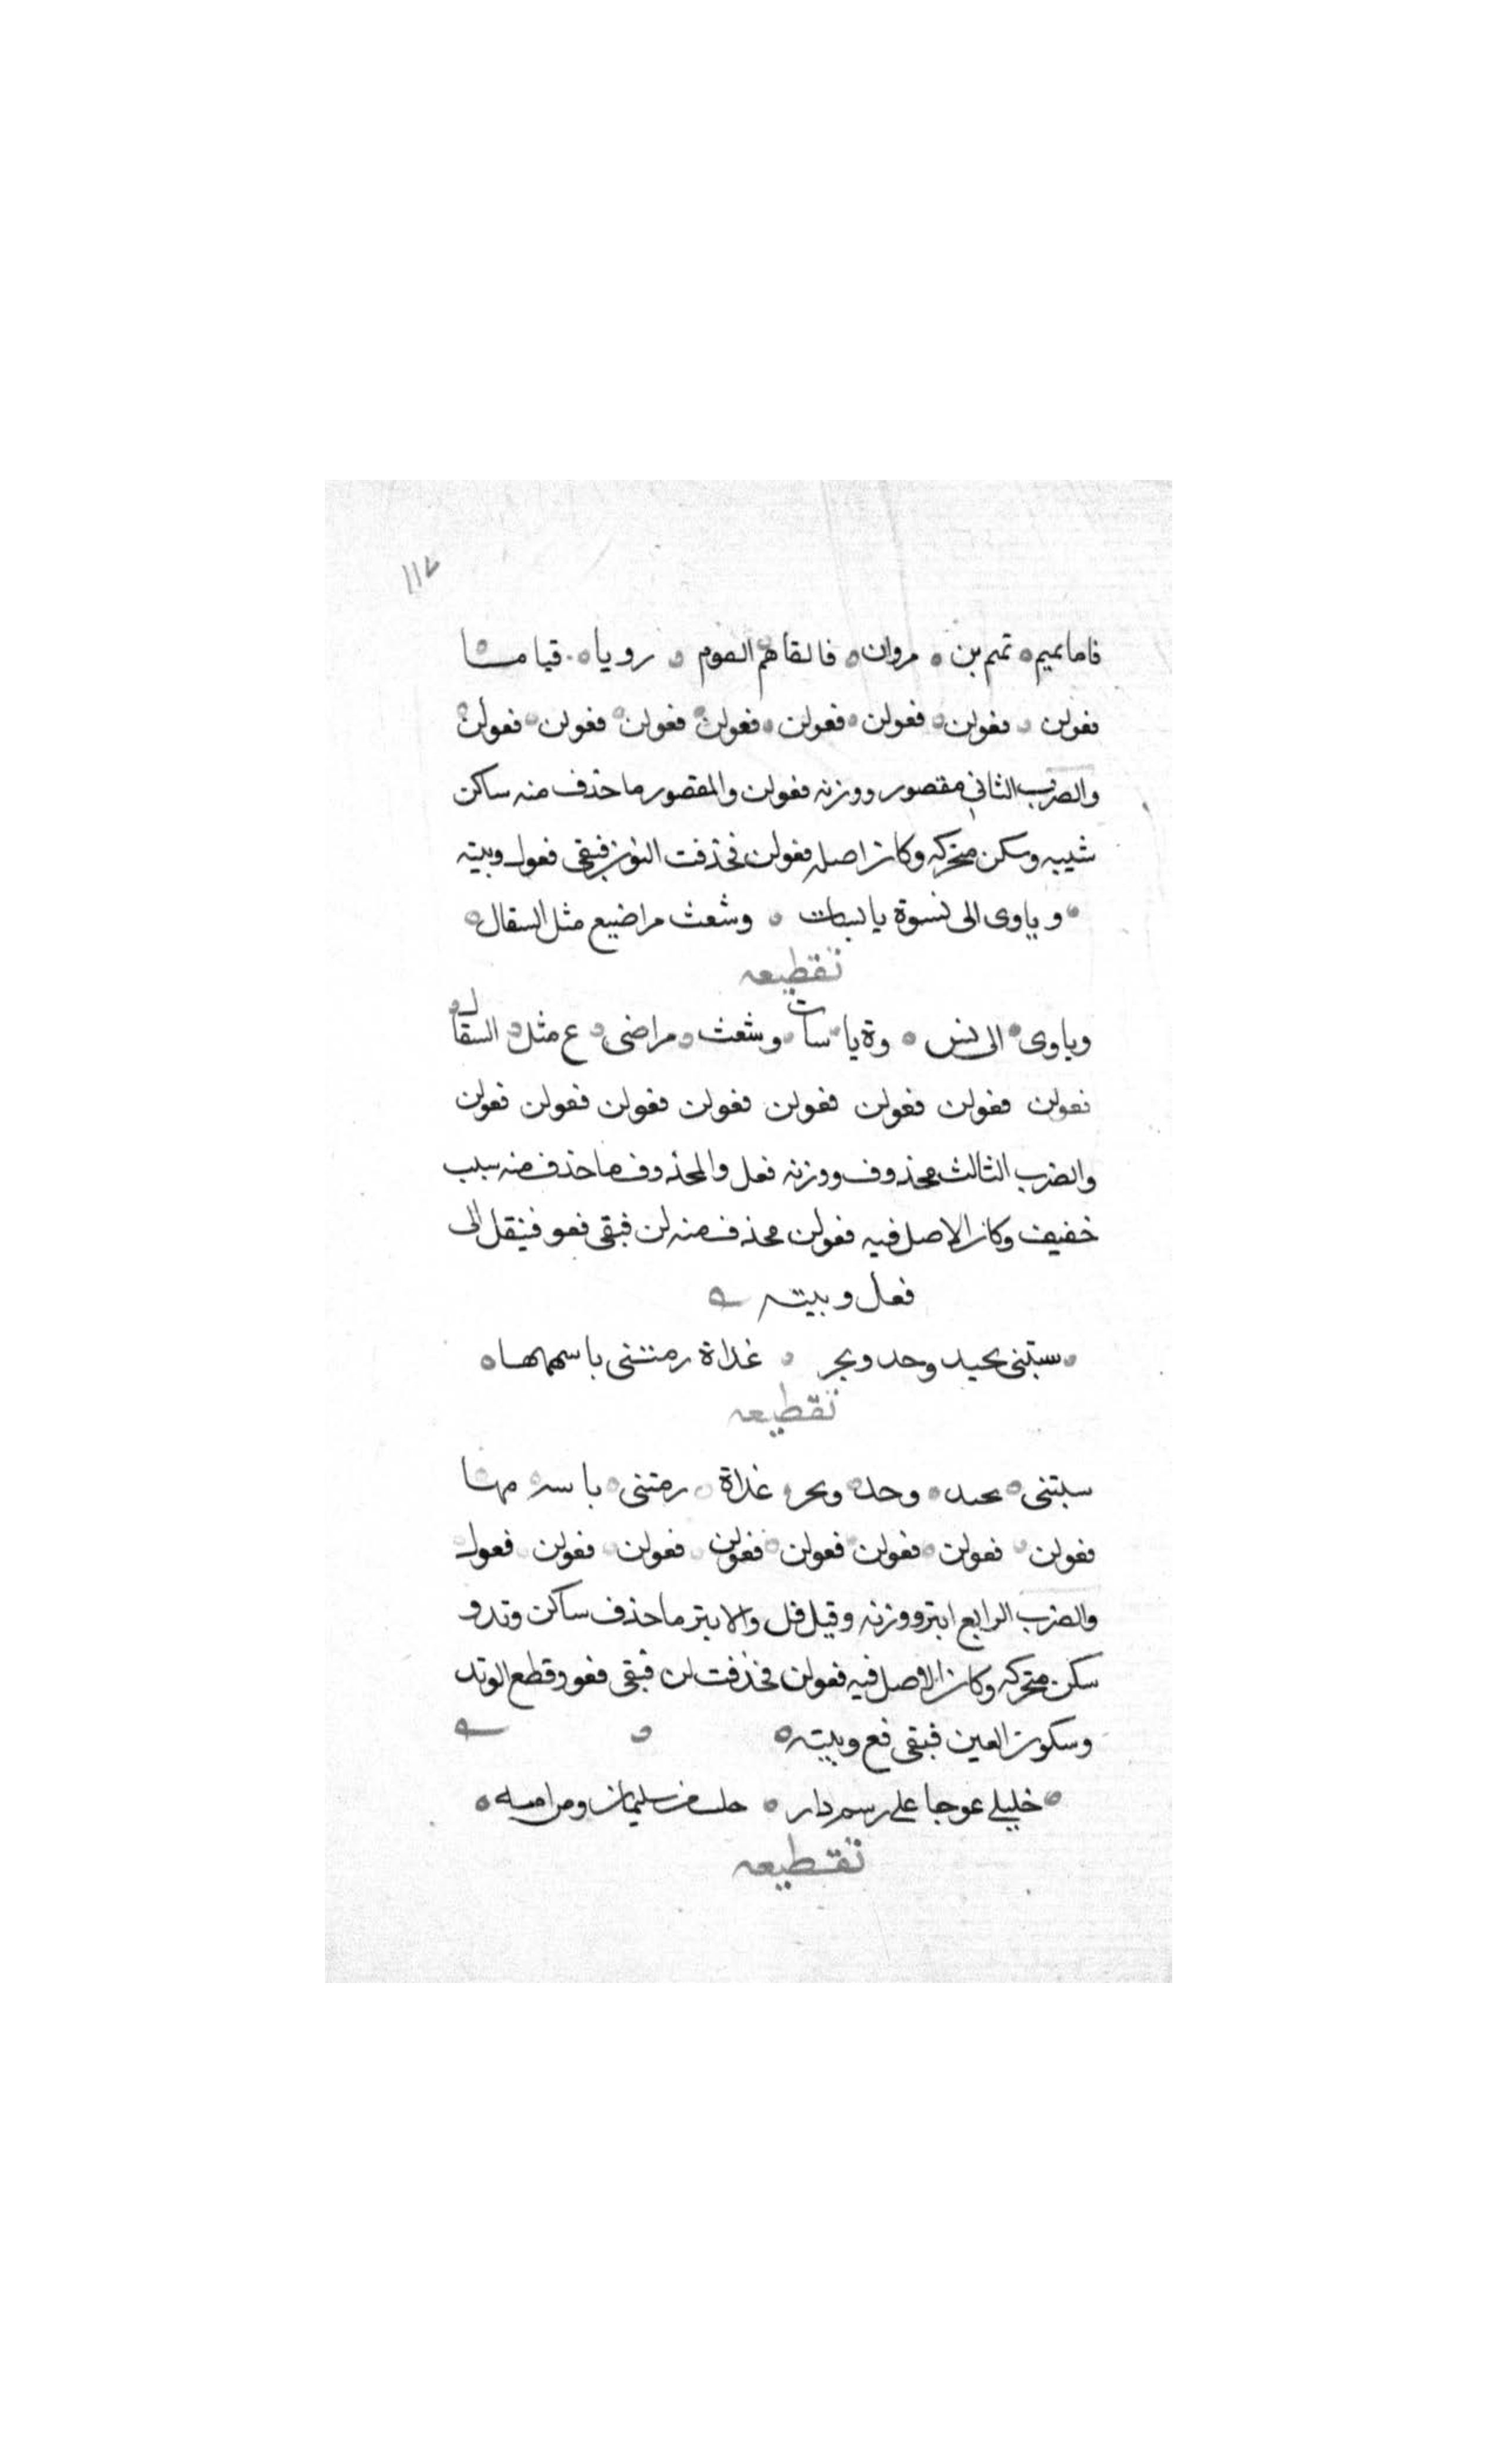 ١١٧
فاما تميم ٥ تميم بن ٥ مروان ٥ فالقاهم القوم ٥ رويا ٥ قياما
فعولن ٥ فعولن ٥ فعولن ٥ فعولن ٥ فعولن ٥ فعولن ٥ فعولن ٥ فعولن ٥
والضرب الثاني مقصور ووزنه فعولن والمقصور ما حذف منه ساكن
شيبه وسكن متحركه وكان اصله فعولن فحذفت النون فبقى فعول وبيته
٥ وياوى الى نسوة يابسات ٥ وشعث مراضيع مثل السقال ٥
تقطيعه
وياوى ٥ الى نس ٥ وة يا ٥ سات ٥ وشعث ٥ مراضى ٥ ع مثل ٥ السقال
فعولن فعولن فعولن فعولن فعولن فعولن فعولن فعولن
والضرب الثالث محذوف ووزنه فعل والمحذوف ما حذف منه سبب
خفيف وكان الاصل فيه فعولن محذف منه لن فبقى فعو فينقل الى
فعل وبيته
٥ سبتنى بجيد وخد ونحر ٥ غداة رمتنى باسهمها ٥
تقطيعه
سبتنى ٥ بجيد ٥ وخد ٥ ونحر ٥ غداة ٥ رمتنى ٥ باسه ٥ مها
فعولن ٥ فعولن ٥ فعولن ٥ فعولن ٥ فعولن ٥ فعولن ٥ فعولن ٥ فعول
والضرب الرابع ابتر ووزنه وقيل فل والابتر ما حذف ساكن وتد و
سكن متحركه وكان الاصل فيه فعولن فحذفت لن فبقى فعو وقطع الوتد
وسكون العين فبقى فع وبيته ٥
٥ خليلى عوجا على رسم دار ٥ سليمان ومن ميه ٥
تقطيعه